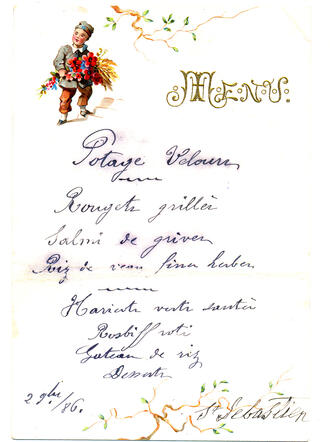 MENU.
Potage Velours
Rougets grillés
Salmi de grives
Riz de veau fines herbes
Haricots verts sautés
Rosbiff roti
Gateau de riz
Desserts
2 9bre/86.
St Sébastien